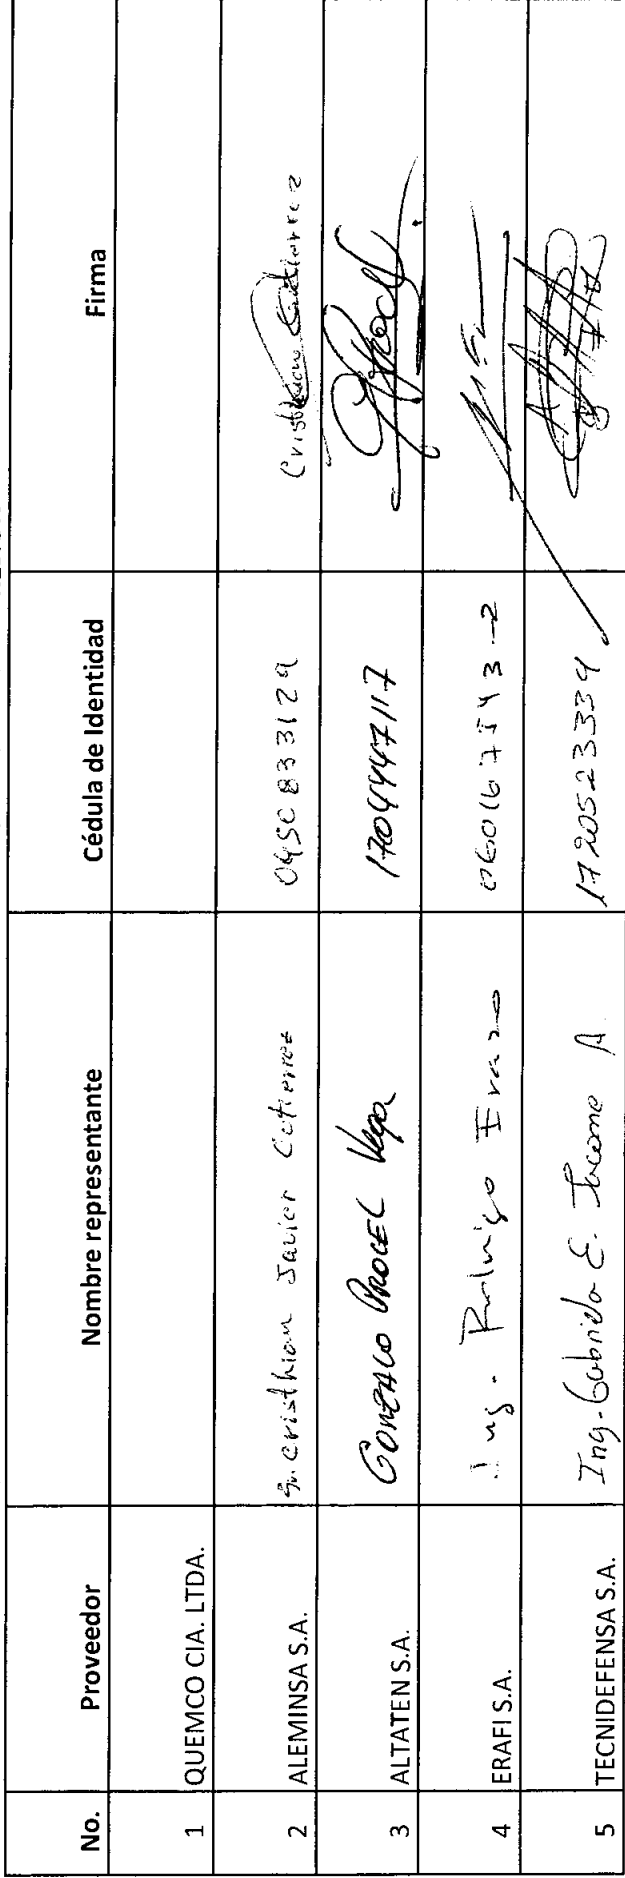 No. Proveedor Nombre representante Cédula de Identidad Firma
1 QUEMCO CIA. LTDA.
2 ALEMINSA S.A. Sr. Cristhian Javier Gutierrez Cristhian Gutierrez
3 ALTATEN S.A. GONZALO PROCEL Vega 1704447117
4 ERAFI S.A. Ing. Rodrigo Erazo 060167543-2
5 TECNIDEFENSA S.A. Ing. Gabriela E. Tacome A. 1720523334